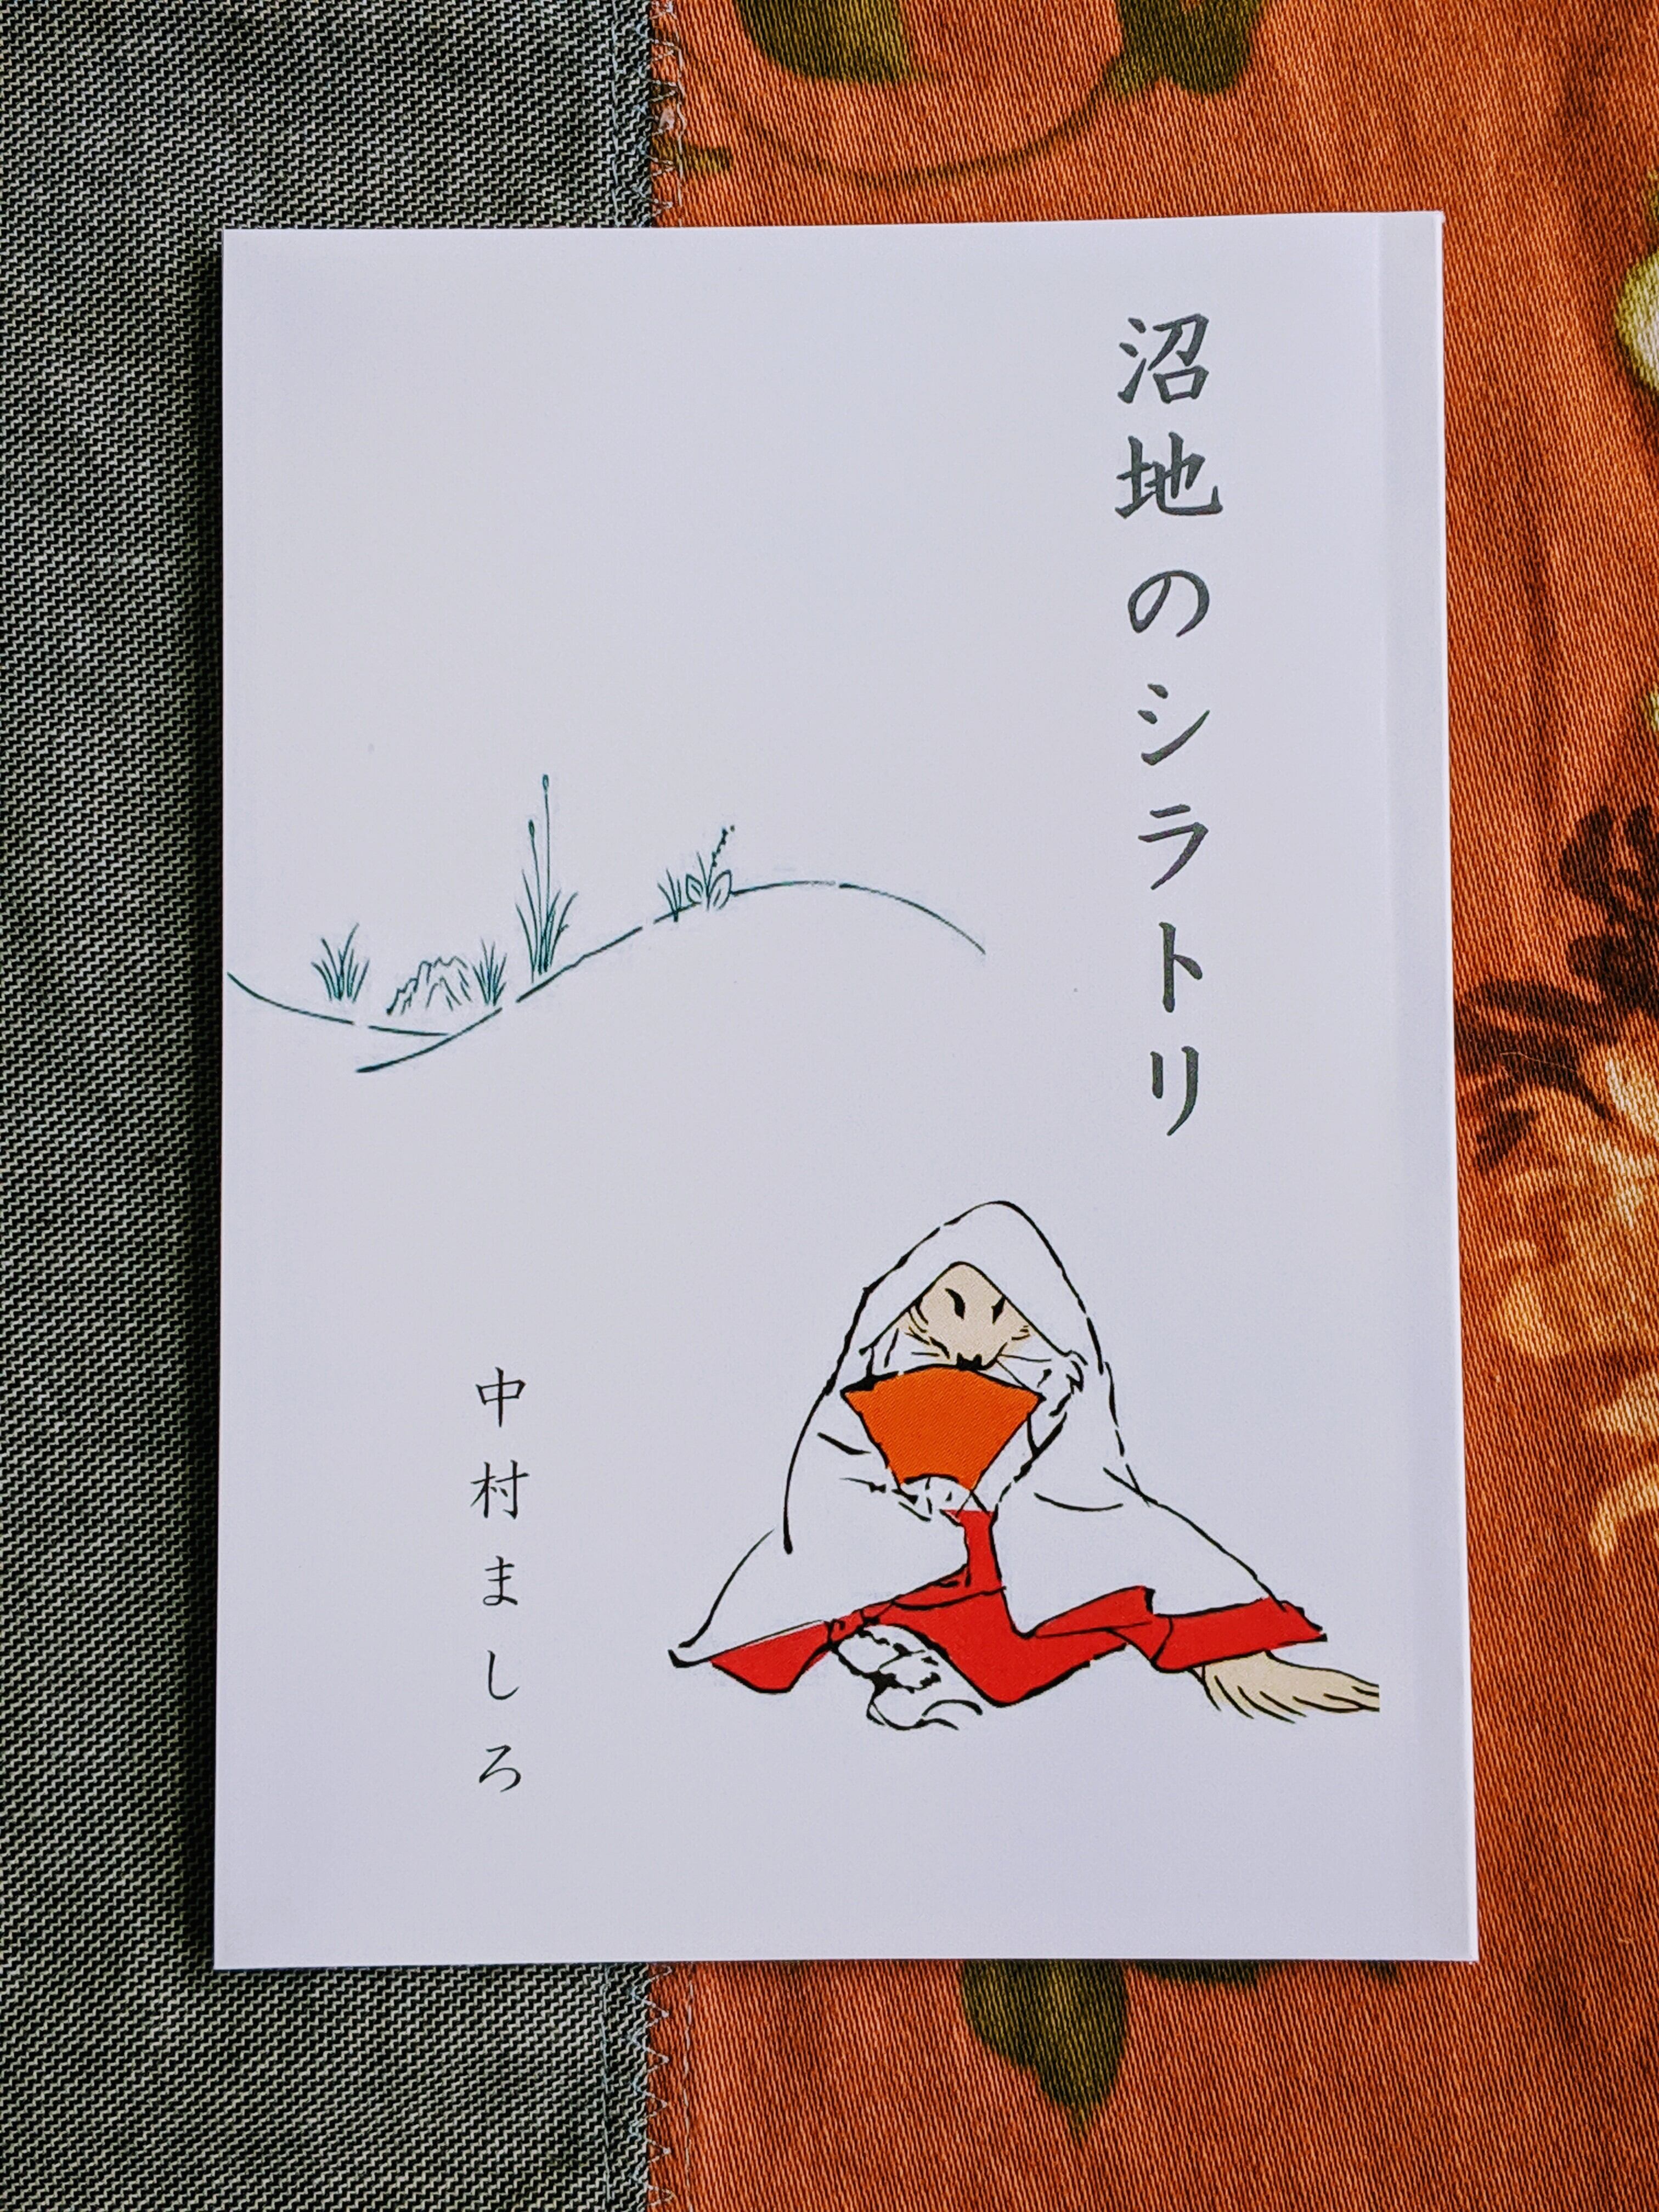 沼地のシラトリ
中村ましろ